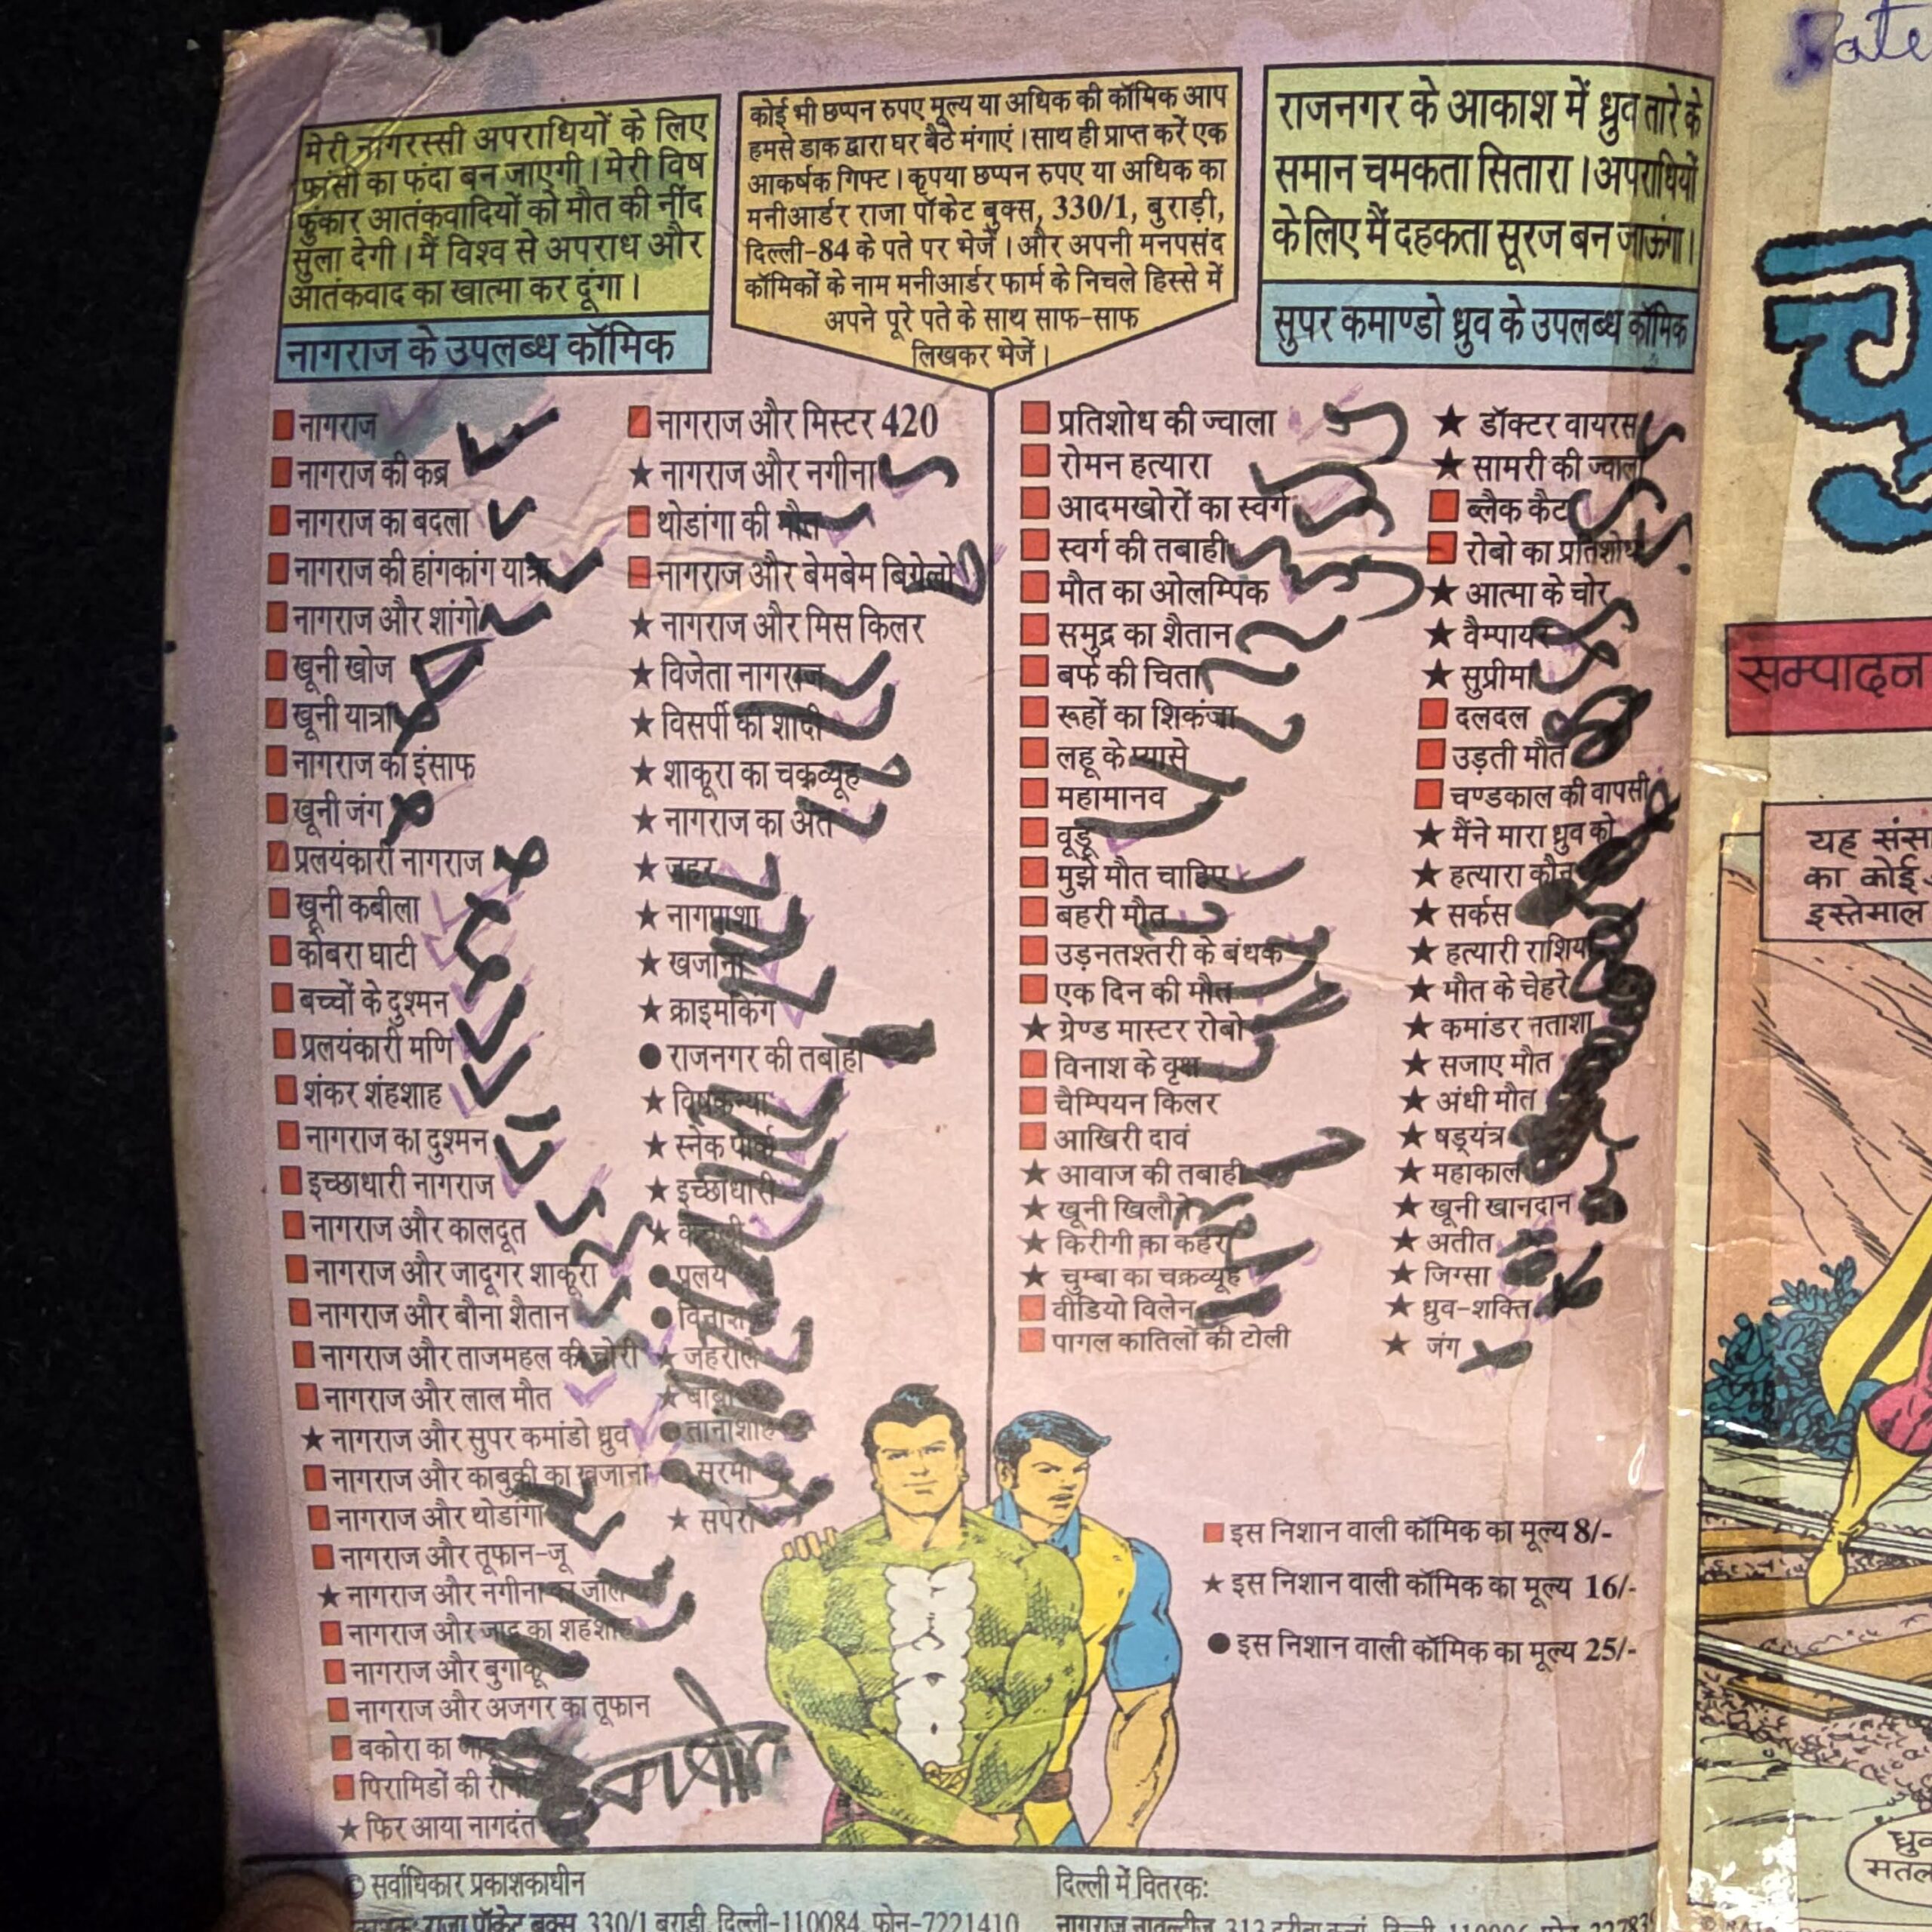 मेरी नागरस्सी अपराधियों के लिए
फांसी का फंदा बन जाएगी। मेरी विष
फुंकार आतंकवादियों को मौत की नींद
सुला देगी। मैं विश्व से अपराध और
आतंकवाद का खात्मा कर दूंगा।
नागराज के उपलब्ध कॉमिक
कोई भी छप्पन रुपए मूल्य या अधिक की कॉमिक आप
हमसे डाक द्वारा घर बैठे मंगाएं। साथ ही प्राप्त करें एक
आकर्षक गिफ्ट। कृपया छप्पन रुपए या अधिक का
मनीआर्डर राजा पॉकेट बुक्स, 330/1, बुराड़ी,
दिल्ली-84 के पते पर भेजें। और अपनी मनपसंद
कॉमिकों के नाम मनीआर्डर फार्म के निचले हिस्से में
अपने पूरे पते के साथ साफ-साफ
लिखकर भेजें।
राजनगर के आकाश में ध्रुव तारे के
समान चमकता सितारा। अपराधियों
के लिए मैं दहकता सूरज बन जाऊंगा।
सुपर कमाण्डो ध्रुव के उपलब्ध कॉमिक
नागराज
नागराज की कब्र
नागराज का बदला
नागराज की हांगकांग यात्रा
नागराज और शांगो
खूनी खोज
खूनी यात्रा
नागराज का इंसाफ
खूनी जंग
प्रलयंकारी नागराज
खूनी कबीला
कोबरा घाटी
बच्चों के दुश्मन
प्रलयंकारी मणि
शंकर शंहशाह
नागराज का दुश्मन
इच्छाधारी नागराज
नागराज और कालदूत
नागराज और जादूगर शाकूरा
नागराज और बौना शैतान
नागराज और ताजमहल की चोरी
नागराज और लाल मौत
★ नागराज और सुपर कमांडो ध्रुव
नागराज और काबुकी का खजाना
नागराज और थोडांगा
नागराज और तूफान-जू
★ नागराज और नगीना का जाल
नागराज और जादू का शहंशाह
नागराज और बुगाकू
नागराज और अजगर का तूफान
बकोरा का
पिरामिडों की
★ फिर आया नागदंत
नागराज और मिस्टर 420
★ नागराज और नगीना
थोडांगा की मौत
नागराज और बेमबेम बिगेलो
★ नागराज और मिस किलर
★ विजेता नागराज
★ विसर्पी की शादी
★ शाकूरा का चक्रव्यूह
★ नागराज का अंत
★ जहर
★ नागपाशा
★ खजाना
★ क्राइमकिंग
● राजनगर की तबाही
★ विषकन्या
★ स्नेक पार्क
★ इच्छाधारी
★
● प्रलय
● विनाश
★ जहरीले
★
● तानाशाह
● सूरमा
★ सपेरा
प्रतिशोध की ज्वाला
रोमन हत्यारा
आदमखोरों का स्वर्ग
स्वर्ग की तबाही
मौत का ओलम्पिक
समुद्र का शैतान
बर्फ की चिता
रूहों का शिकंजा
लहू के प्यासे
महामानव
वूडू
मुझे मौत चाहिए
बहरी मौत
उड़नतश्तरी के बंधक
एक दिन की मौत
★ ग्रेण्ड मास्टर रोबो
विनाश के वृक्ष
चैम्पियन किलर
आखिरी दावं
★ आवाज की तबाही
★ खूनी खिलौने
★ किरीगी का कहर
★ चुम्बा का चक्रव्यूह
वीडियो विलेन
पागल कातिलों की टोली
★ डॉक्टर वायरस
★ सामरी की ज्वाला
ब्लैक कैट
रोबो का प्रतिशोध
★ आत्मा के चोर
★ वैम्पायर
★ सुप्रीमा
दलदल
उड़ती मौत
चण्डकाल की वापसी
★ मैंने मारा ध्रुव को
★ हत्यारा कौन
★ सर्कस
★ हत्यारी राशियां
★ मौत के चेहरे
★ कमांडर नताशा
★ सजाए मौत
★ अंधी मौत
★ षड्यंत्र
★ महाकाल
★ खूनी खानदान
★ अतीत
★ जिग्सा
★ ध्रुव-शक्ति
★ जंग
इस निशान वाली कॉमिक का मूल्य 8/-
★ इस निशान वाली कॉमिक का मूल्य 16/-
● इस निशान वाली कॉमिक का मूल्य 25/-
© सर्वाधिकार प्रकाशकाधीन
राजा पॉकेट बुक्स, 330/1 बुराड़ी, दिल्ली-110084, फोन-7221410
दिल्ली में वितरक:
सम्पादन
यह संसा
का कोई
इस्तेमाल
ध्रुव
मतल